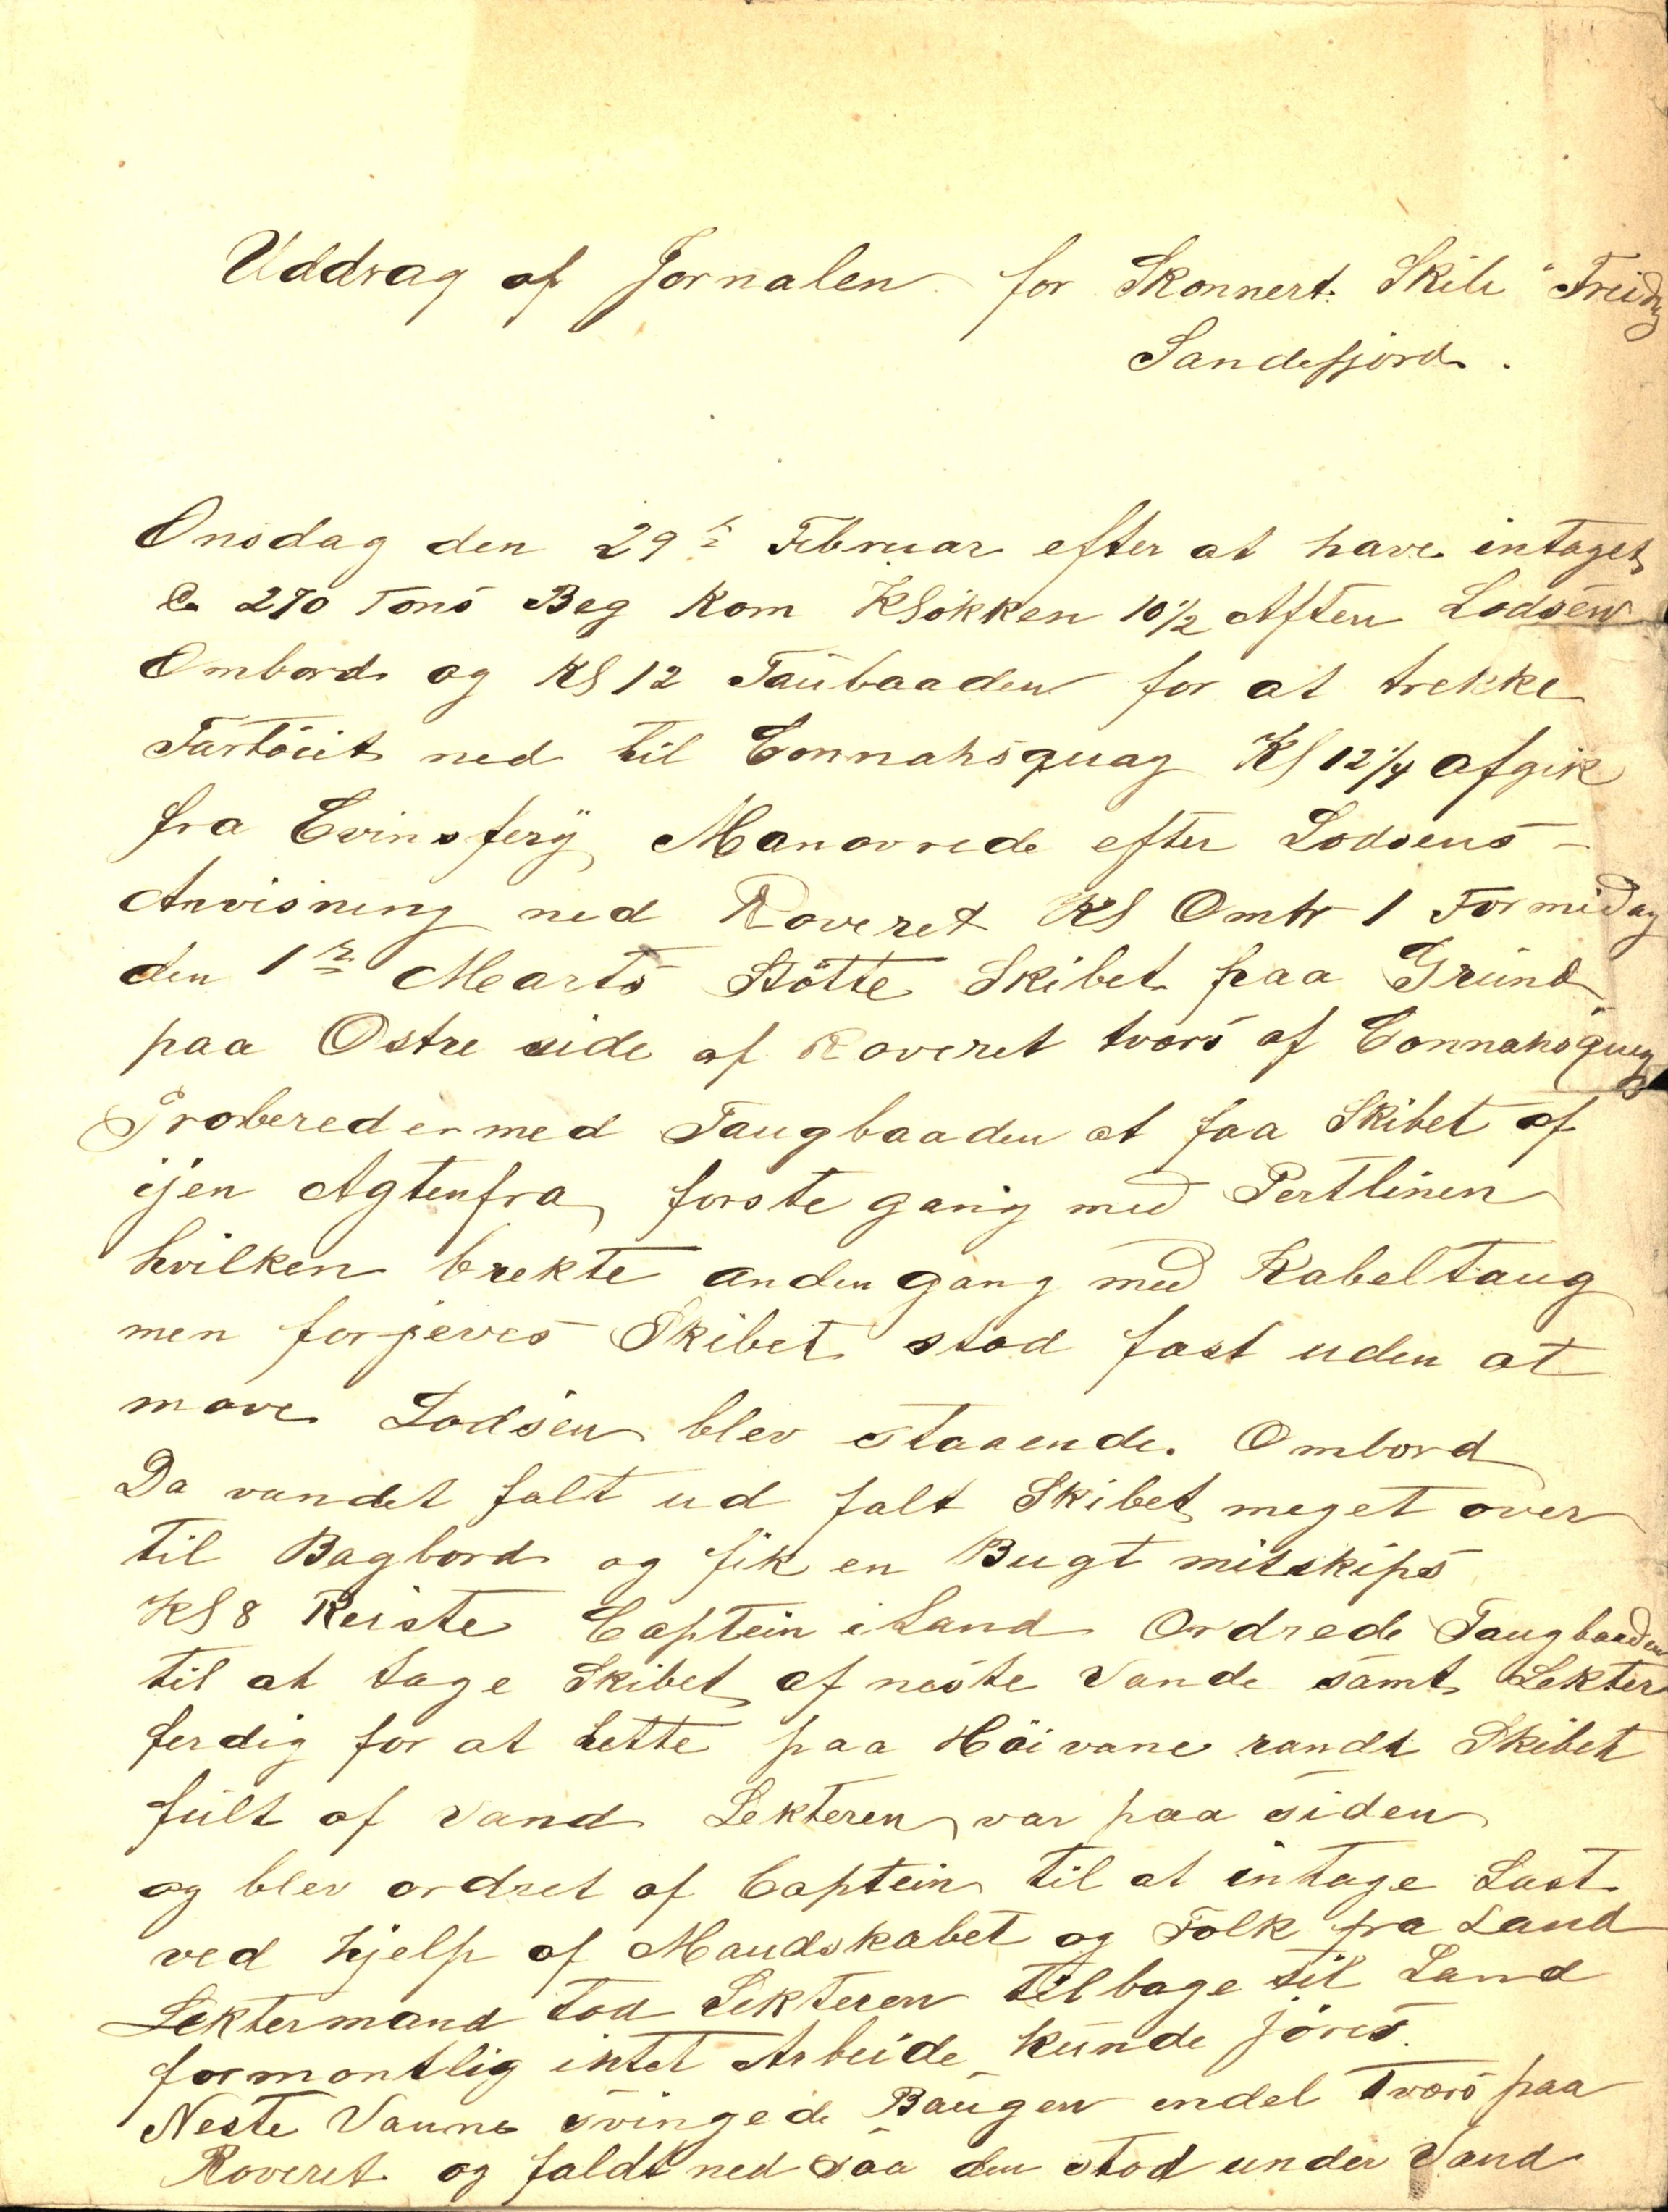 Uddrag af Jornalen for Skonnert. Skib "Freidig
Sandefjord.
Onsdag den 29de Februar efter at have intaget
Ca 270 Tons Beg kom Klokken 10 1/2 Aften Lodsen
Ombord og Kl 12 Taubaaden for at trekke
Fartöiet ned til Connahsquay Kl 12 1/4 afgik
fra Qvinsfery Manovrede efter Lodsens
Anvisning ned Roveret Kl Omtr 1 Formidag
den 1ste Marts Stötte Skibet paa Grund
paa Ostre side af Roveret tvors af Connahsquay
Proberede med Taugbaaden at faa Skibet af
ijen Agtenfra forste gang med Pertlinen
hvilken brekte anden gang med Kabeltaug
men forjeves Skibet stod fast uden at
move Lodsen blev staaende Ombord
Da vandet falt ud falt Skibet meget over
til Bagbord og fik en Bugt mitskips
Kl 8 Reiste Captein i Land Ordrede Taugbaaden
til at tage Skibet af neste Vande samt Lekter
ferdig for at lette paa Höivane randt Skibet
fult af Vand Lekteren var paa siden
og blev ordret af Captein til at intage Last
ved hjelp af Mandskabet og Folk fra Land
Lektermand tod Lekteren tilbage til Land
formontlig intet Arbeide kunde jöres.
Neste Vanne svingede Baugen endel Tvors paa
Roveret og faldt ned saa den stod under Vand